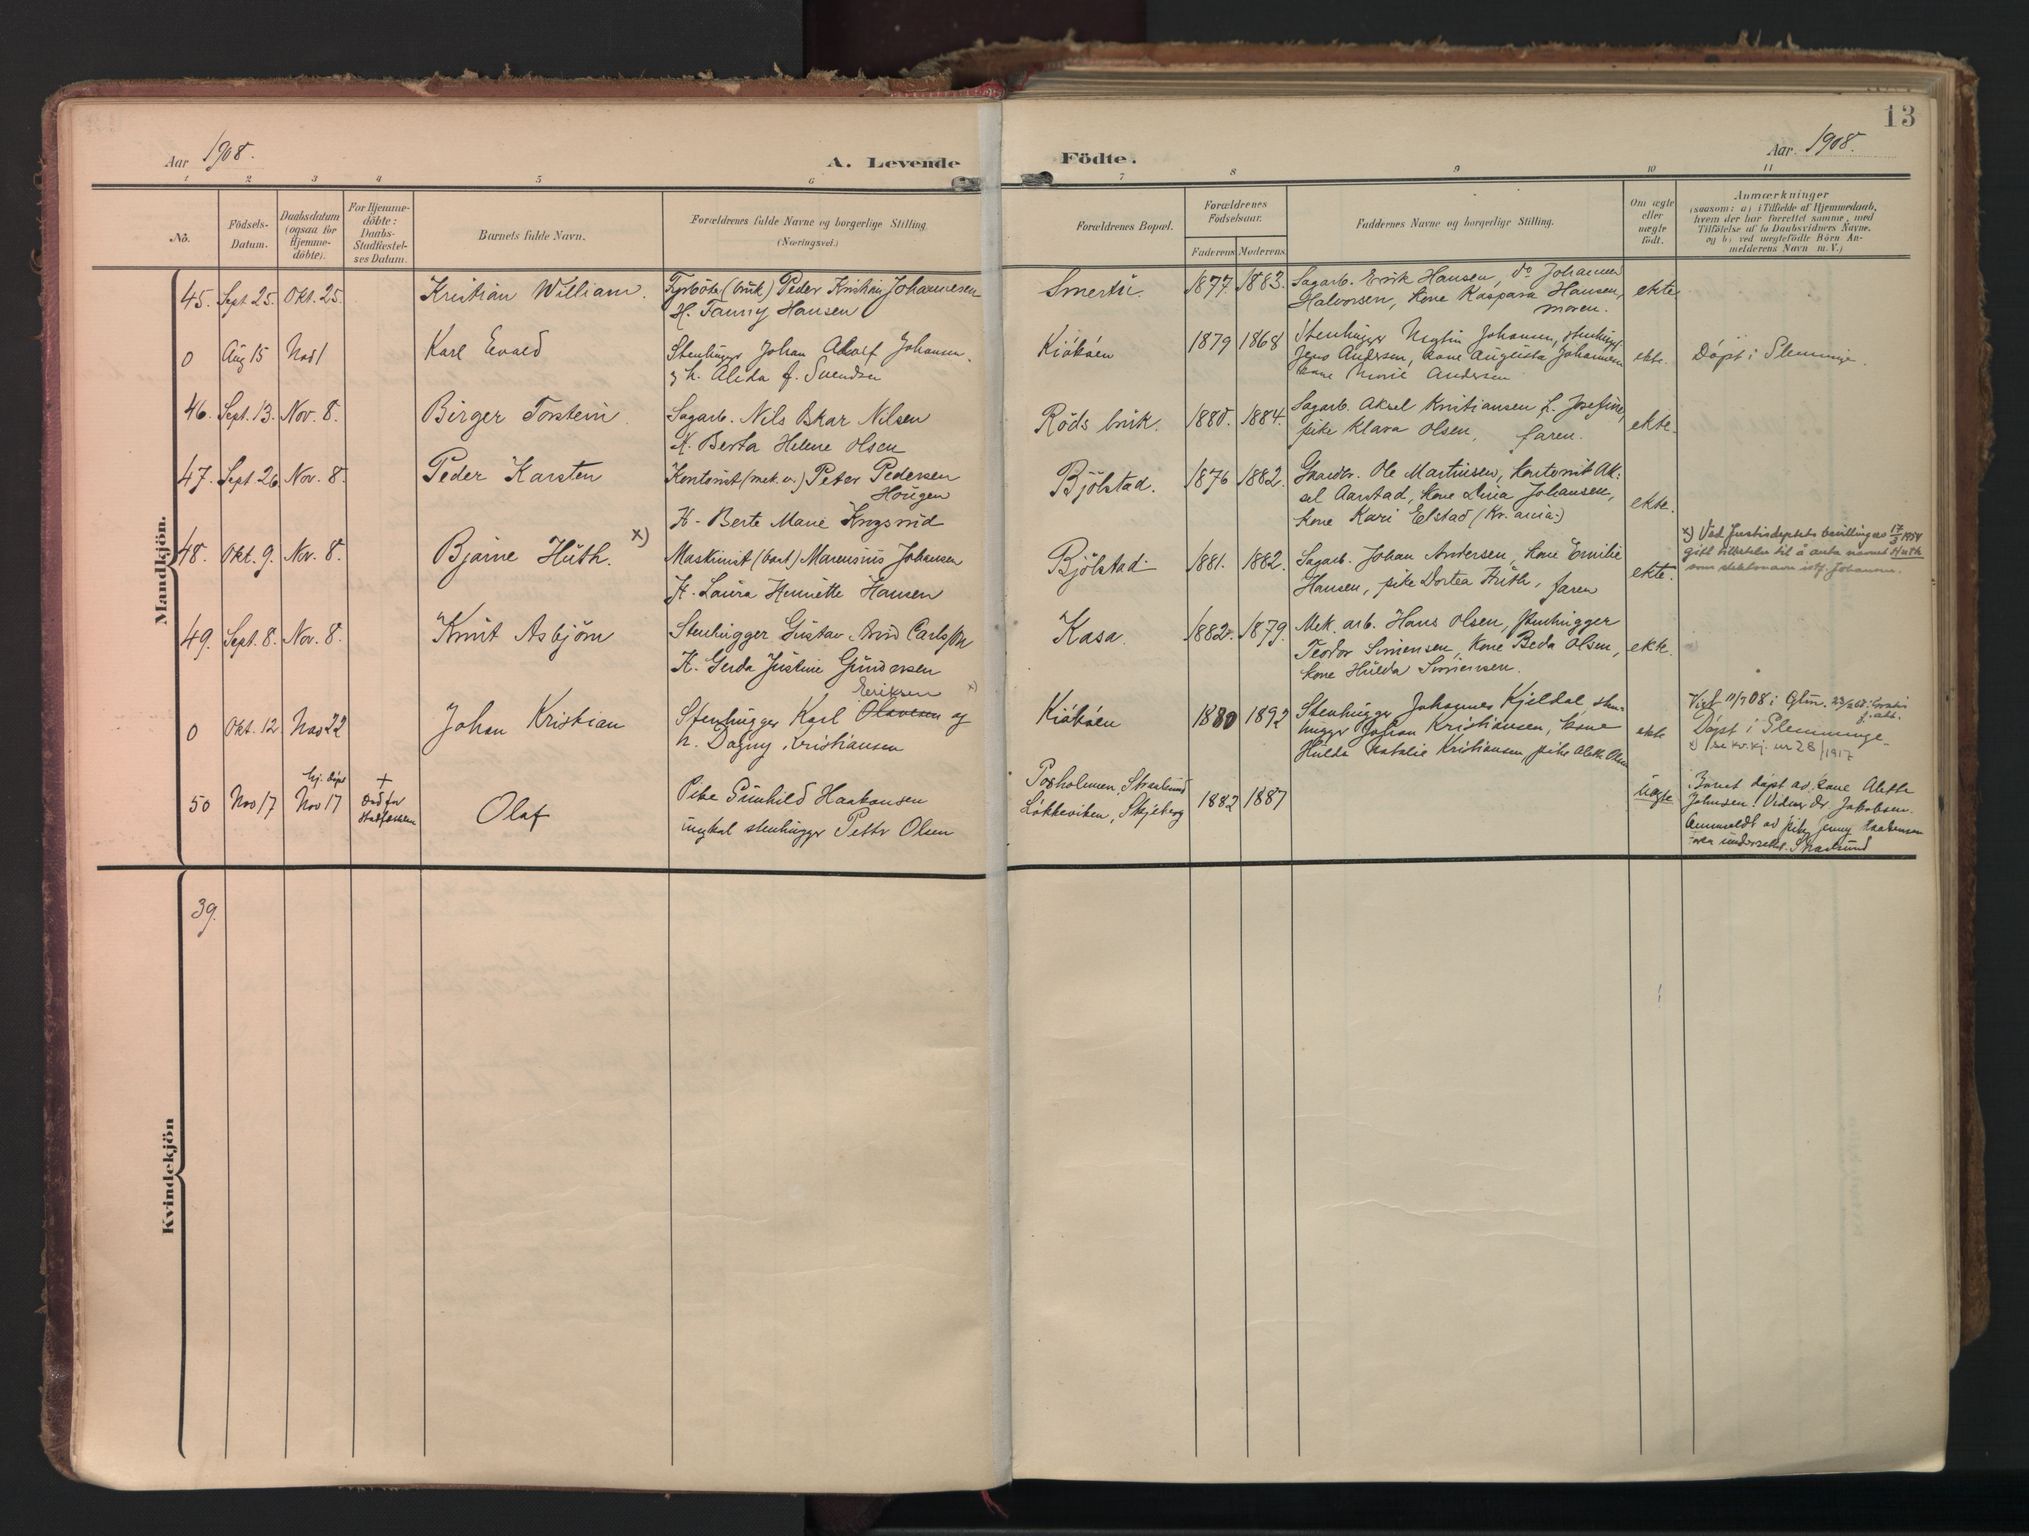 13
Aar 1908.
A. Levende Födte.
Aar 1908.
1 2 3 4 5 6 7 8 9 10 11
No.
Födsels-
Datum.
Daabsdatum
(ogsaa for
Hjemme-
döbte).
For Hjemme-
döbte:
Daabs-
Stadfæstel-
ses Datum.
Barnets fulde Navn.
Forældrenes fulde Navne og borgerlige Stilling.
(Næringsvei.)
Forældrenes Bopæl.
Forældrenes
Födselsaar.
Faderens Moderens
Faddernes Navne og borgerlige Stilling.
Om ægte
eller
uægte
födt.
Anmærkninger
(saasom: a) i Tilfælde af Hjemmedaab,
hvem der har forrettet samme, med
Tilföielse af to Daabsvidners Navne,
og b) ved uægtefödte Börn An-
melderens Navn m. V.)
Mandkjön.
45. Sept. 25. Okt. 25. Kristian William.
Fyrböter (bruk) Peder Kristian Johannesen
H. Fanny Hansen
Smertu. 1877. 1883.
Sagarb. Erik Hansen, do Johannes
Halvorsen, kone Kaspara Hansen,
moren.
ekte
0 Aug 15 Nov 1 Karl Evald
Stenhugger Johan Adolf Johansen
og h. Alida f. Svendsen
Kiököen 1879 1868
Stenhugger Johansen, stenhugger
Jens Andersen, kone Augusta Johannesen
kone Marie Andersen
ekte. Döpt i Glemminge.
46. Sept. 13. Nov. 8. Birger Torstein.
Sagarb. Nils Oskar Nilsen
H. Berta Helene Olsen
Röds bruk. 1880. 1884.
Sagarb. Aksel Kristiansen h. Josefine,
pike Klara Olsen, faren.
ekte.
47. Sept 26. Nov. 8. Peder Karsten
Kontorist (mek. v.) Peter Pedersen
Hougen
H. Berte Marie
Bjölstad. 1876 1882.
Gaardbr. Ole Martinsen, kontorist Ak-
sel Aarstad, kone Lina Johansen,
kone Kari Elstad (Kr.ania.)
ekte.
48. Okt. 9. Nov. 8. Bjarne Huth. x)
Maskinist (baat) Marensius Johansen
H. Laura Henriette Hansen
Bjölstad. 1881. 1882.
Sagarb. Johan Andersen, kone Emilie
Hansen, pike Dortea Huth, faren
ekte.
x) Ved Justisdeptets bevilling av 17/3 1954
gitt tillatelse til å anta navnet Huth
som slektsnavn istf. Johansen.
49. Sept. 8. Nov. 8. Knut Asbjörn
Stenhugger Gustav Arvid Carlsson
H. Gerda Justine Gundersen
Kasa. 1882. 1879.
Mek. arb. Hans Olsen, stenhugger
Teodor Simensen, kone Beda Olsen,
kone Hulda Simensen.
ekte.
0 Okt. 12. Nov 22 Johan Kristian
Eriksen x)
Stenhugger Karl Olavesen og
h. Dagny Kristiansen
Kiököen 1880 1892
Stenhugger Johannes Kjeldal, sten-
hugger Johan Kristiansen, kone
Hulda Natalie Kristiansen, pike Aleth Olsen
ekte
Döpt i Glemminge.
x) se kv.kj. nr 28/1917
50 Nov 17 hj. döpt
Nov 17
+
Död för
Stadfæstelsen
Olaf
Pike Gunhild Haakonsen
ungkal stenhugger Petter Olsen
Lökkeviken, Skjeberg 1882 1887
uegte
Barnet döpt av kone Aleth
Johnsen. Jakobsen.
Anmeldt av pike Jenny Haakonsen
Kvindekjön
39.